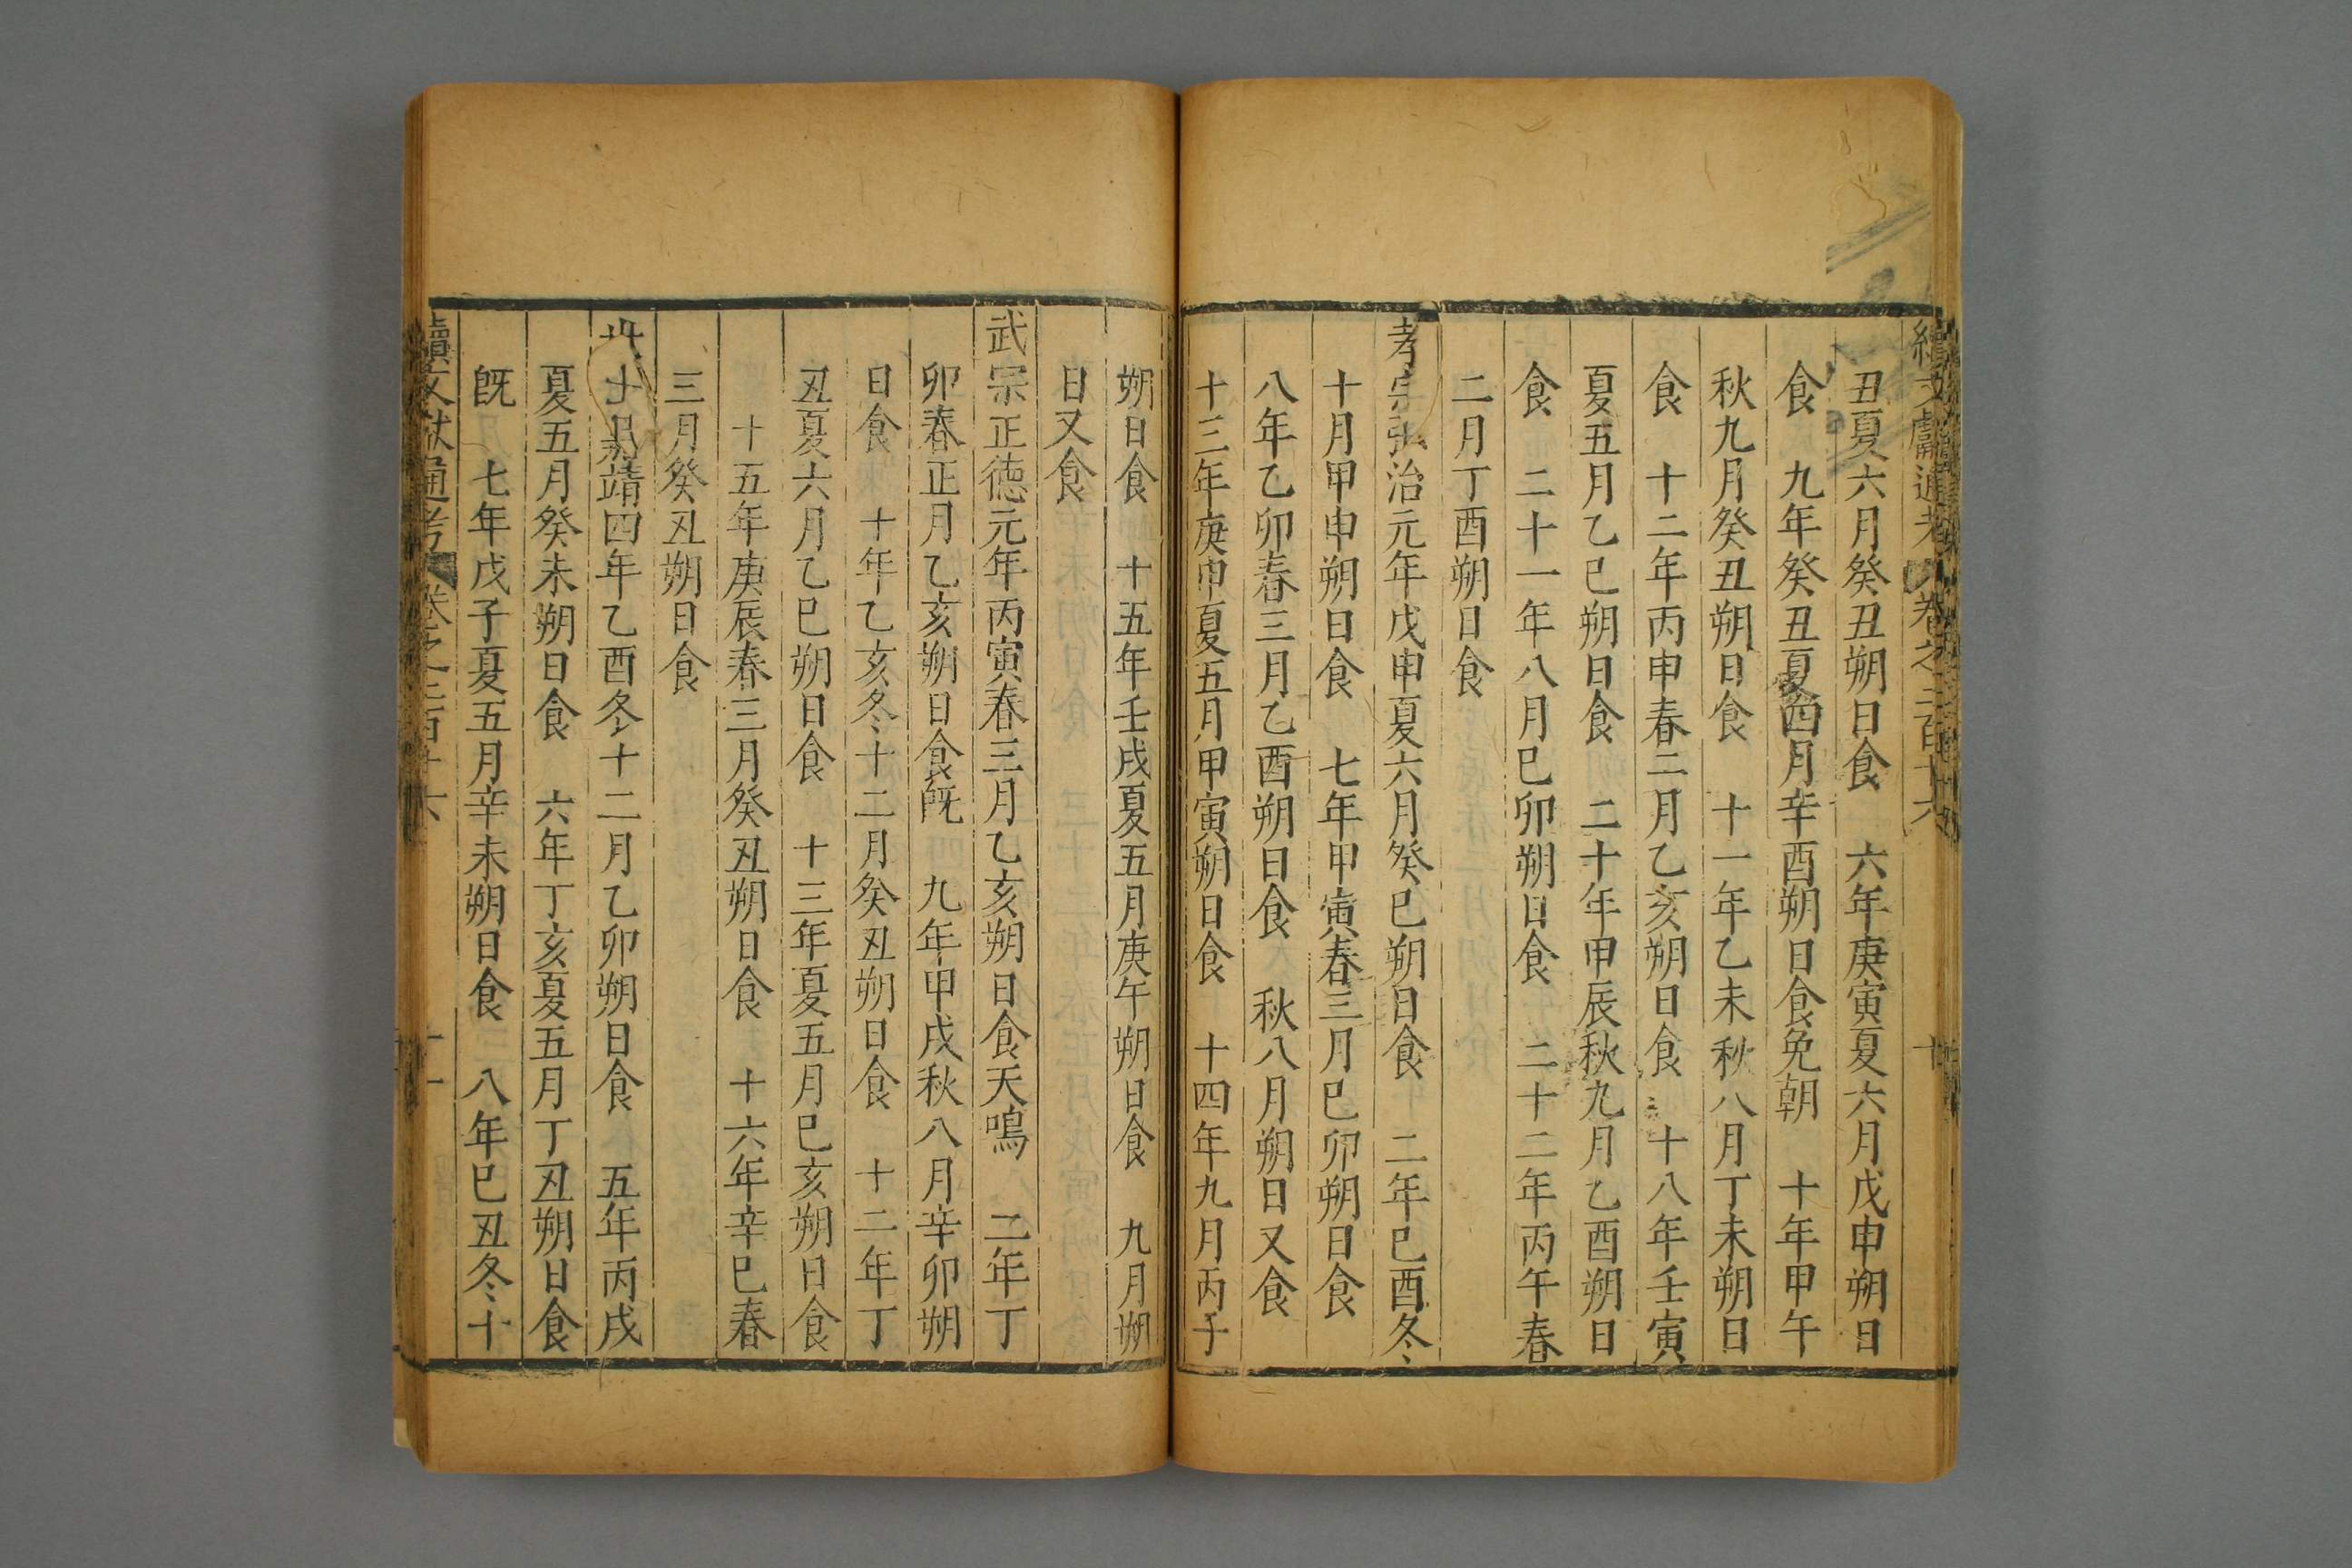 續文獻通考 卷之二百十六 十
丑夏六月癸丑朔日食 六年庚寅夏六月戊申朔日
食 九年癸丑夏四月辛酉朔日食免朝 十年甲午
秋九月癸丑朔日食 十一年乙未秋八月丁未朔日
食 十二年丙申春二月乙亥朔日食 十八年壬寅
夏五月乙巳朔日食 二十年甲辰秋九月乙酉朔日
食 二十一年八月巳卯朔日食 二十二年丙午春
二月丁酉朔日食
孝宗弘治元年戊申夏六月癸巳朔日食 二年巳酉冬
十月甲申朔日食 七年甲寅春三月巳卯朔日食
八年乙卯春三月乙酉朔日食 秋八月朔日又食
十三年庚申夏五月甲寅朔日食 十四年九月丙子
朔日食 十五年壬戌夏五月庚午朔日食 九月朔
日又食
武宗正德元年丙寅春三月乙亥朔日食天鳴 二年丁
卯春正月乙亥朔日食旣 九年甲戌秋八月辛卯朔
日食 十年乙亥冬十二月癸丑朔日食 十二年丁
丑夏六月乙巳朔日食 十三年夏五月巳亥朔日食
十五年庚辰春三月癸丑朔日食 十六年辛巳春
三月癸丑朔日食
靖四年乙酉冬十二月乙卯朔日食 五年丙戌
夏五月癸未朔日食 六年丁亥夏五月丁丑朔日食
旣 七年戊子夏五月辛未朔日食 八年巳丑冬十
續文獻通考 卷之二百十六 十一